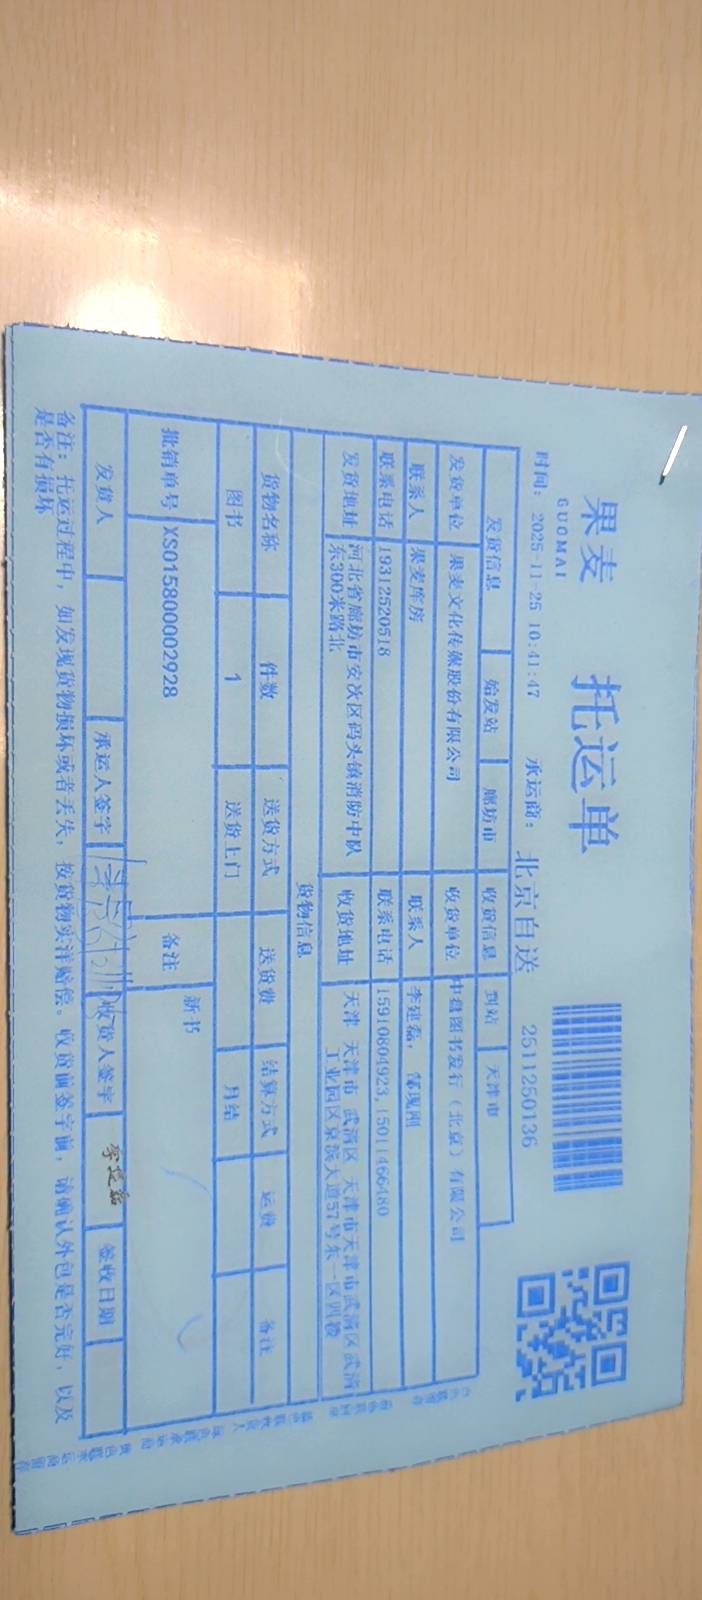 果麦
GUOMAI
托运单
时间: 2025-11-25 10:41:47 承运商: 北京自送 2511250136
发货信息 始发站 廊坊市 收货信息 到站 天津市
发货单位 果麦文化传媒股份有限公司 收货单位 中盘图书发行(北京)有限公司
联系人 果麦库房 联系人 李建磊,郜现刚
联系电话 19312520518 联系电话 15910804923,15011466480
发货地址 河北省廊坊市安次区码头镇消防中队 收货地址 天津 天津市 武清区 天津市天津市武清区武清
东300米路北 工业园区泉滨大道57号东一区四楼
货物信息
货物名称 件数 送货方式 送货费 结算方式 运费 备注
图书 1 送货上门 月结
批销单号 XS015800002928 备注 新书
发货人 承运人签字 收货人签字 李建磊 签收日期
备注: 托运过程中, 如发现货物损坏或者丢失, 按货物实洋赔偿。收货前签字前, 请确认外包是否完好, 以及
是否有损坏